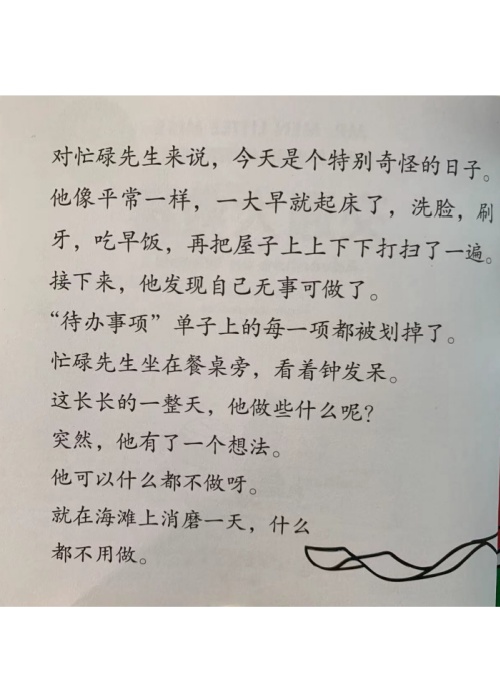 对忙碌先生来说，今天是个特别奇怪的日子。
他像平常一样，一大早就起床了，洗脸，刷
牙，吃早饭，再把屋子上上下下打扫了一遍。
接下来，他发现自己无事可做了。
“待办事项”单子上的每一项都被划掉了。
忙碌先生坐在餐桌旁，看着钟发呆。
这长长的一整天，他做些什么呢？
突然，他有了一个想法。
他可以什么都不做呀。
就在海滩上消磨一天，什么
都不用做。